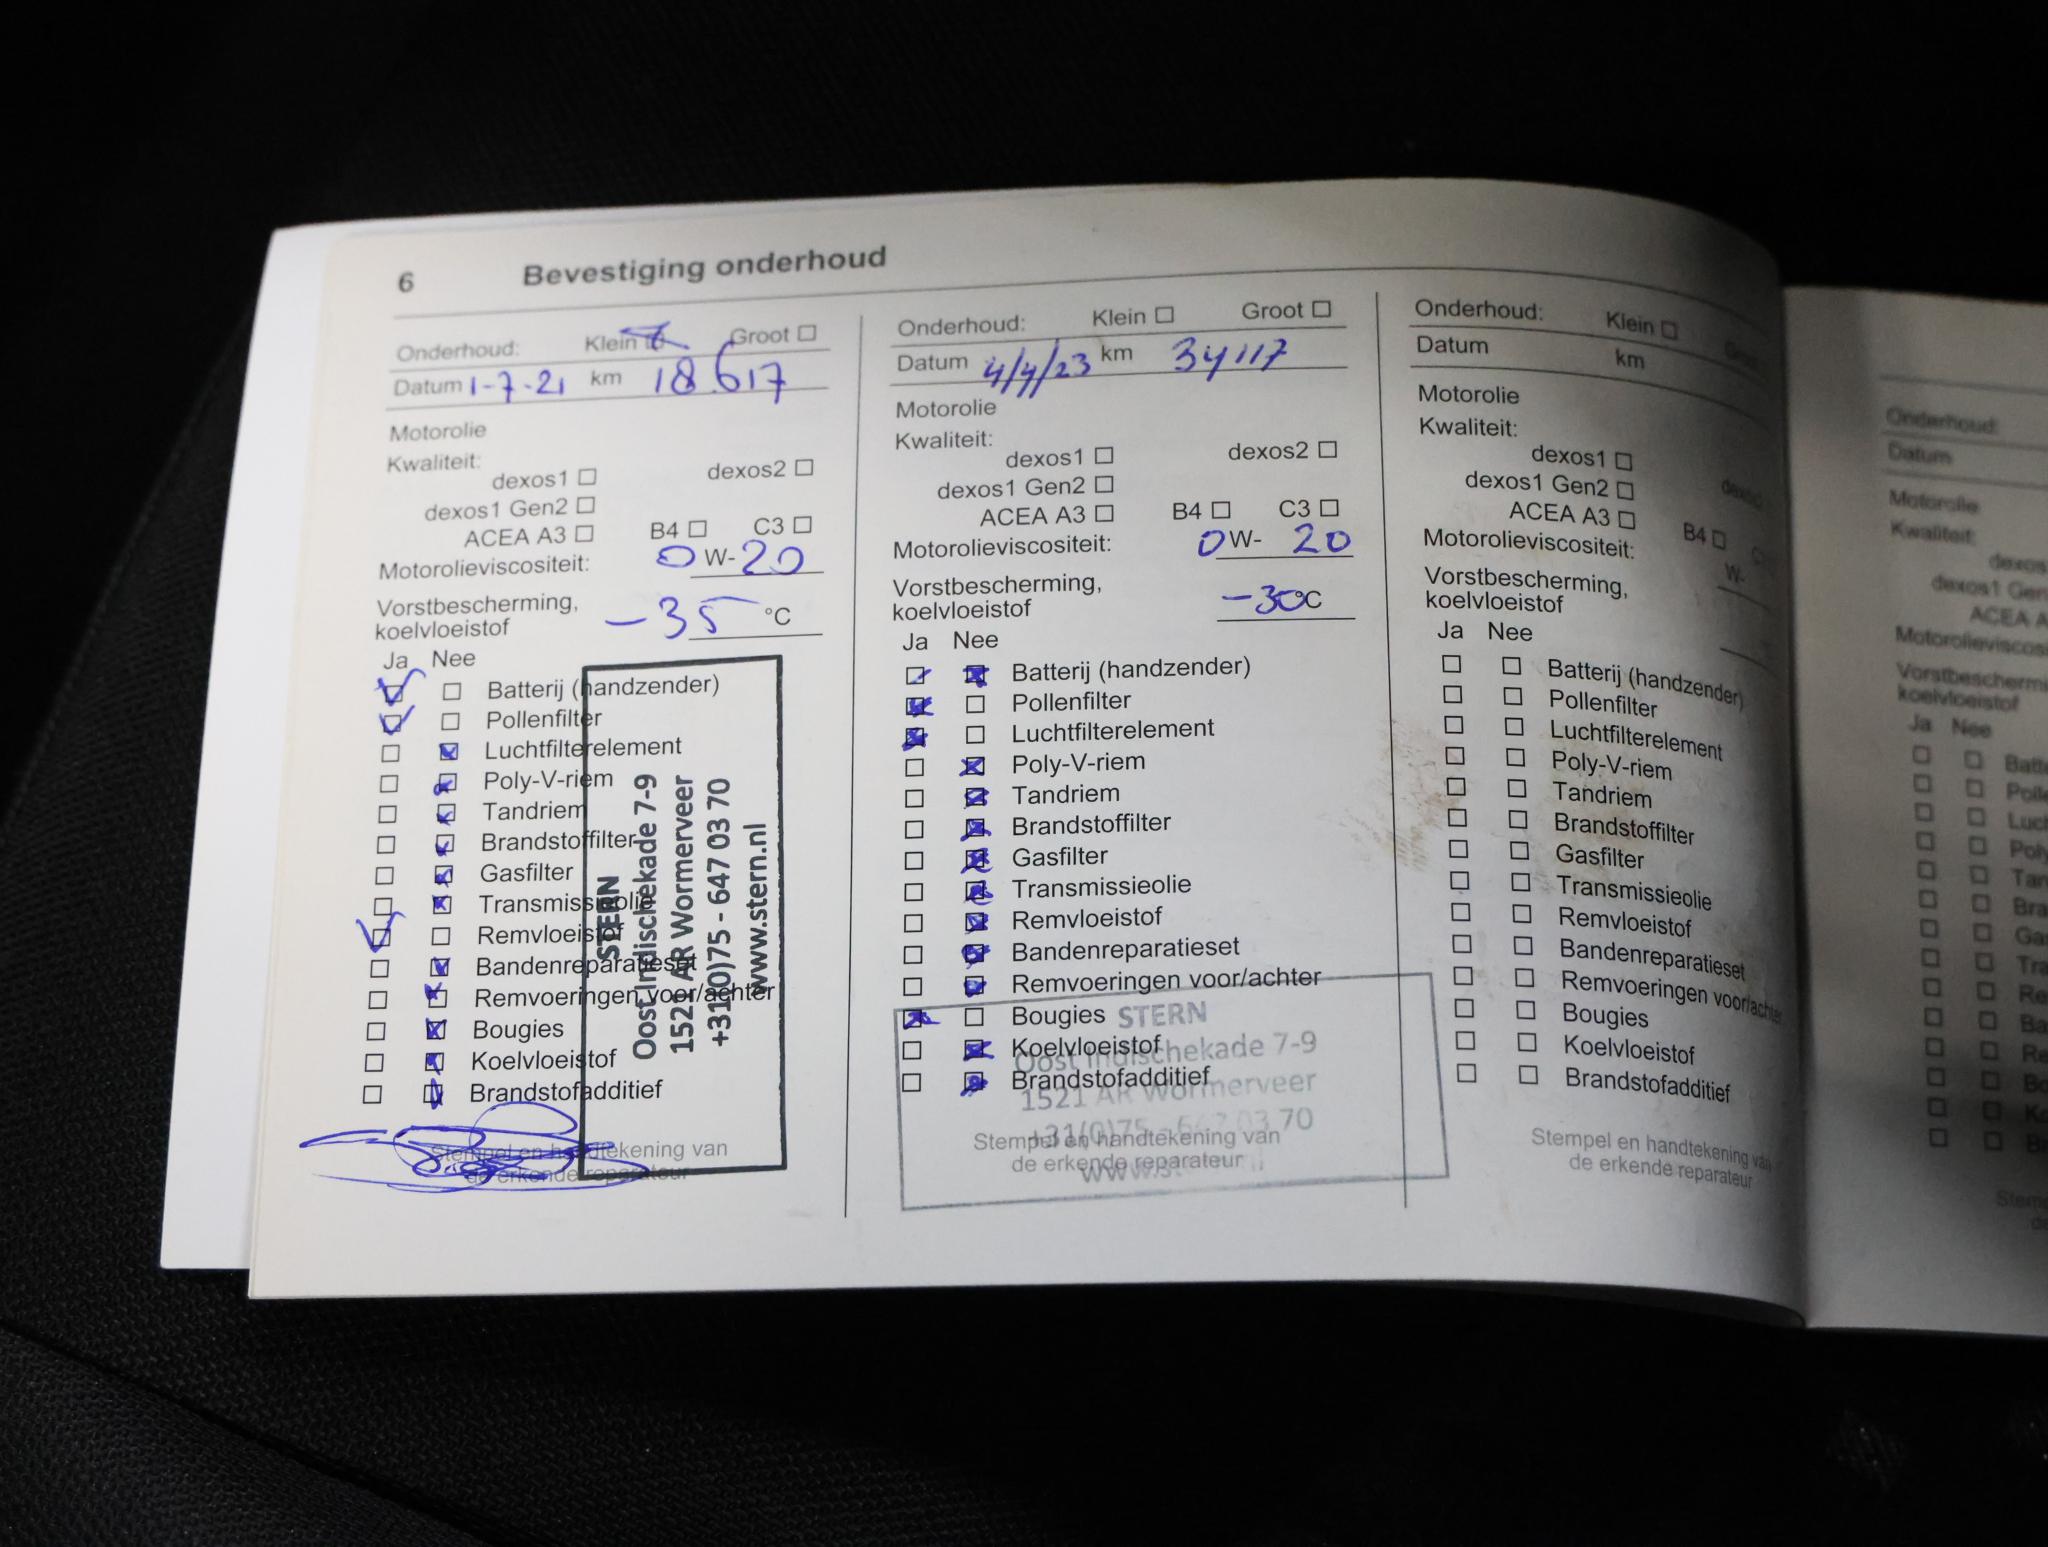 6 Bevestiging onderhoud
Onderhoud: Klein Groot
Datum 1-7-21 km 18.617
Motorolie
Kwaliteit:
dexos1 dexos2
dexos1 Gen2
ACEA A3 B4 C3
Motorolieviscositeit: 0 W- 20
Vorstbescherming,
koelvloeistof -35 °C
Ja Nee
Batterij (handzender)
Pollenfilter
Luchtfilterelement
Poly-V-riem
Tandriem
Brandstoffilter
Gasfilter
Transmissieolie
Remvloeistof
Bandenreparatieset
Remvoeringen voor/achter
Bougies
Koelvloeistof
Brandstofadditief
Stempel en handtekening van
de erkende reparateur
STERN
Oost Indischekade 7-9
1521 AR Wormerveer
+31(0)75 - 647 03 70
www.stern.nl
Onderhoud: Klein Groot
Datum 4/4/23 km 34117
Motorolie
Kwaliteit:
dexos1 dexos2
dexos1 Gen2
ACEA A3 B4 C3
Motorolieviscositeit: 0 W- 20
Vorstbescherming,
koelvloeistof -30 °C
Ja Nee
Batterij (handzender)
Pollenfilter
Luchtfilterelement
Poly-V-riem
Tandriem
Brandstoffilter
Gasfilter
Transmissieolie
Remvloeistof
Bandenreparatieset
Remvoeringen voor/achter
Bougies
Koelvloeistof
Brandstofadditief
Stempel en handtekening van
de erkende reparateur
STERN
Oost Indischekade 7-9
1521 AR Wormerveer
+31(0)75 - 647 03 70
www.st
Onderhoud: Klein Groot
Datum km
Motorolie
Kwaliteit:
dexos1
dexos1 Gen2
ACEA A3 B4
Motorolieviscositeit: W-
Vorstbescherming,
koelvloeistof
Ja Nee
Batterij (handzender)
Pollenfilter
Luchtfilterelement
Poly-V-riem
Tandriem
Brandstoffilter
Gasfilter
Transmissieolie
Remvloeistof
Bandenreparatieset
Remvoeringen voor/achter
Bougies
Koelvloeistof
Brandstofadditief
Stempel en handtekening van
de erkende reparateur
Onderhoud:
Datum
Motorolie
Kwaliteit:
dexos
dexos1 Gen
ACEA A
Motorolieviscos
Vorstbescherm
koelvloeistof
Ja Nee